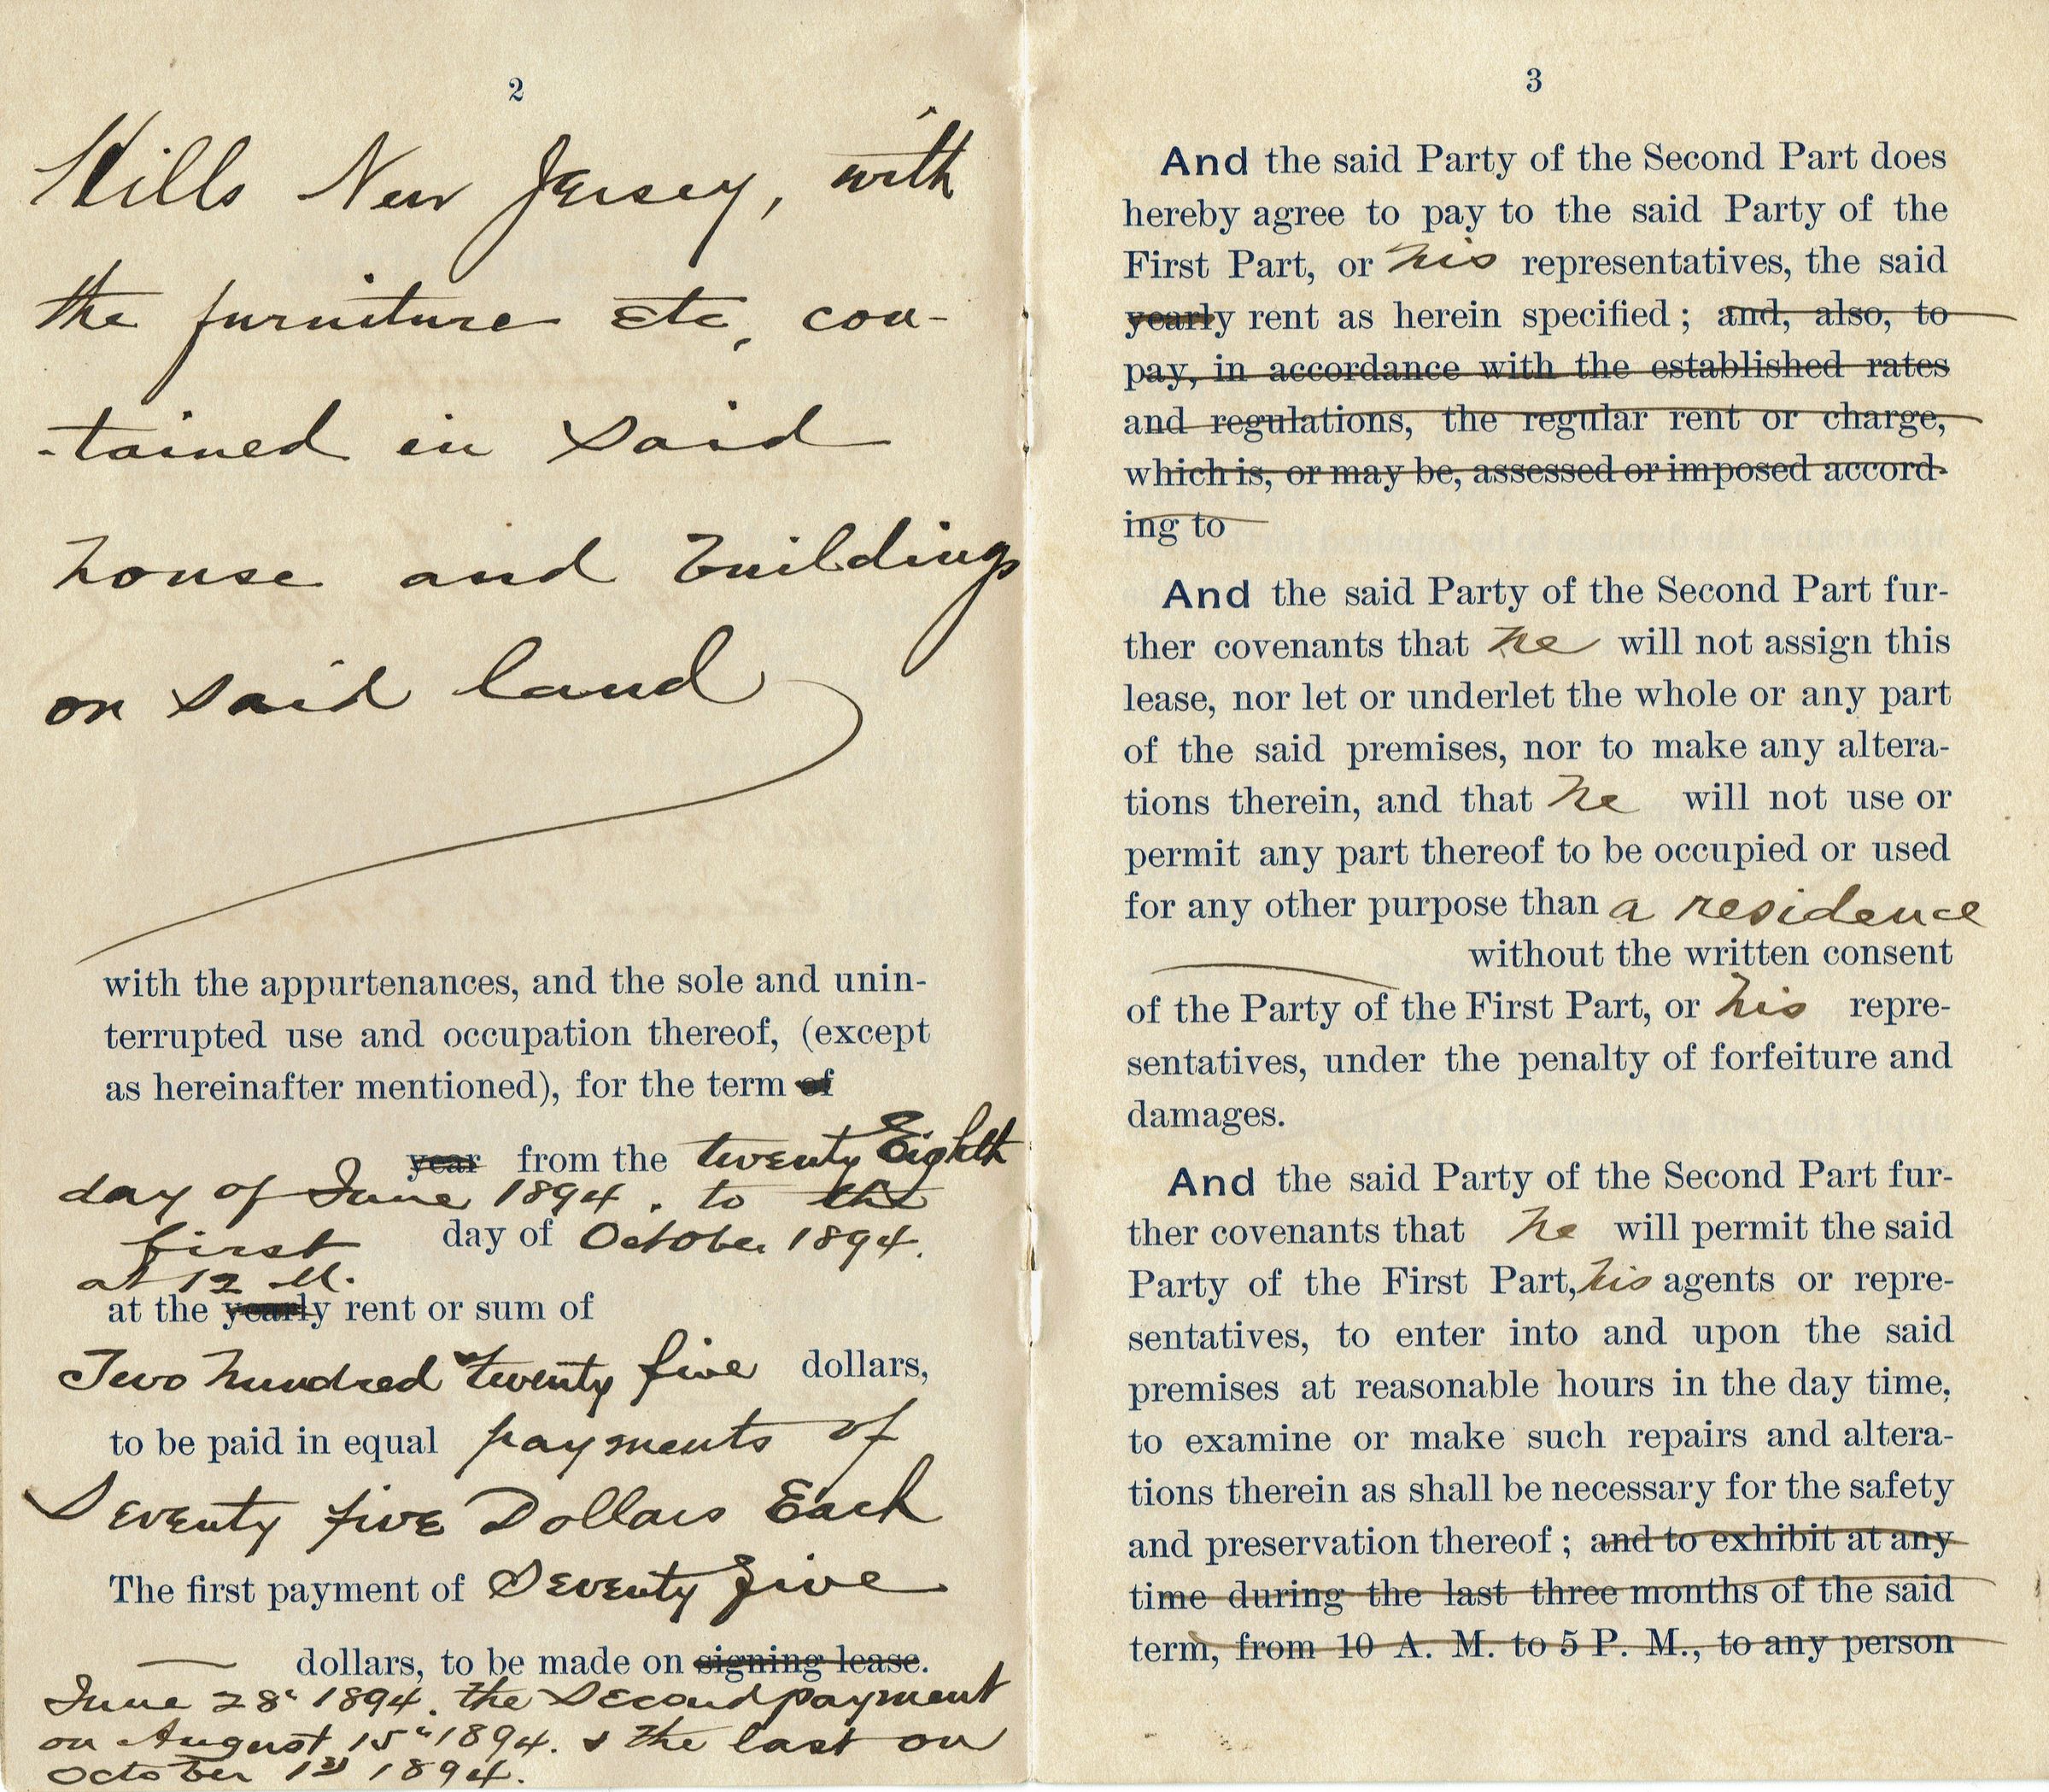 2
Hills New Jersey, with
the furniture etc, con-
-tained in said
house and buildings
on said land
with the appurtenances, and the sole and unin-
terrupted use and occupation thereof, (except
as hereinafter mentioned), for the term of
year from the twenty Eighth
day of June 1894. to the
first day of October 1894.
at 12 M.
at the yearly rent or sum of
Two hundred twenty five dollars,
to be paid in equal payments of
Seventy five Dollars Each
The first payment of Seventy five
dollars, to be made on signing lease.
June 28" 1894. the Second payment
on August 15" 1894. & the last on
October 1st 1894.
3
And the said Party of the Second Part does
hereby agree to pay to the said Party of the
First Part, or his representatives, the said
yearly rent as herein specified; and, also, to
pay, in accordance with the established rates
and regulations, the regular rent or charge,
which is, or may be, assessed or imposed accord-
ing to
And the said Party of the Second Part fur-
ther covenants that he will not assign this
lease, nor let or underlet the whole or any part
of the said premises, nor to make any altera-
tions therein, and that he will not use or
permit any part thereof to be occupied or used
for any other purpose than a residence
without the written consent
of the Party of the First Part, or his repre-
sentatives, under the penalty of forfeiture and
damages.
And the said Party of the Second Part fur-
ther covenants that he will permit the said
Party of the First Part, his agents or repre-
sentatives, to enter into and upon the said
premises at reasonable hours in the day time,
to examine or make such repairs and altera-
tions therein as shall be necessary for the safety
and preservation thereof; and to exhibit at any
time during the last three months of the said
term, from 10 A. M. to 5 P. M., to any person